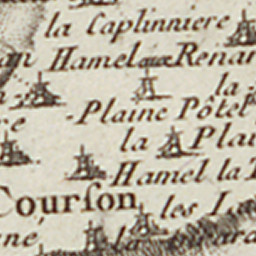 la Caplinniere
Hamel aux Renar
la
Plaine Pôtel
la Plai
Hamel la
Courſon les
né la